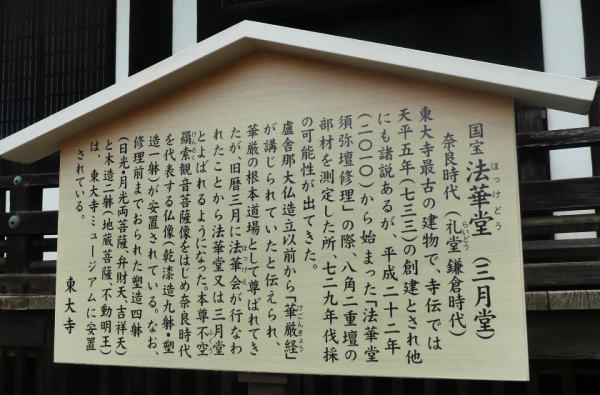 国宝 法華堂（三月堂）
ほっけどう
奈良時代（礼堂 鎌倉時代）
らいどう
東大寺最古の建物で、寺伝では
天平五年（七三三）の創建とされ他
にも諸説あるが、平成二十二年
（二〇一〇）から始まった「法華堂
須弥壇修理」の際、八角二重壇の
部材を測定した所、七二九年伐採
の可能性が出てきた。
盧舎那大仏造立以前から「華厳経」
けごんきょう
が講じられていたと伝えられ、
華厳の根本道場として尊ばれてき
たが、旧暦三月に法華会が行なわ
ほっけえ
れたことから法華堂又は三月堂
とよばれるようになった。本尊不空
羂索観音菩薩像をはじめ奈良時代
けん
を代表する仏像（乾漆造九躯・塑
造一躯）が安置されている。なお、
修理前までおられた塑造四躯
（日光・月光両菩薩、弁財天、吉祥天）
と木造二躯（地蔵菩薩、不動明王）
は、東大寺ミュージアムに安置
されている。
東大寺